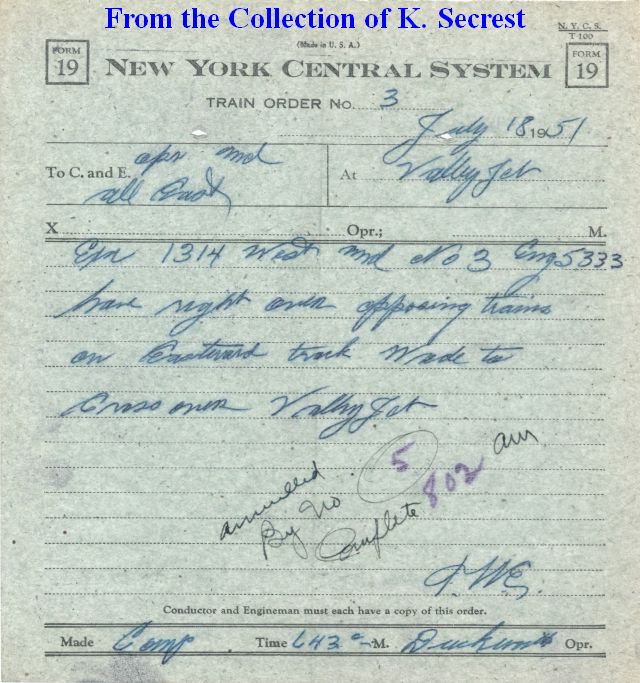 From the Collection of K. Secrest
N. Y. C. S.
T 100
(Made in U. S. A.)
FORM 19
NEW YORK CENTRAL SYSTEM
FORM 19
TRAIN ORDER No. 3
July 18 1951
To C. and E. opr md
all East
At Valley Jct
X Opr.; M.
1314 West md No 3 Eng 5333
have right over opposing trains
on Eastward track Wade to
Cross over Valley Jct
annulled
By No 5
Complete 802 am
Conductor and Engineman must each have a copy of this order.
Made Comp Time 643 M. Opr.